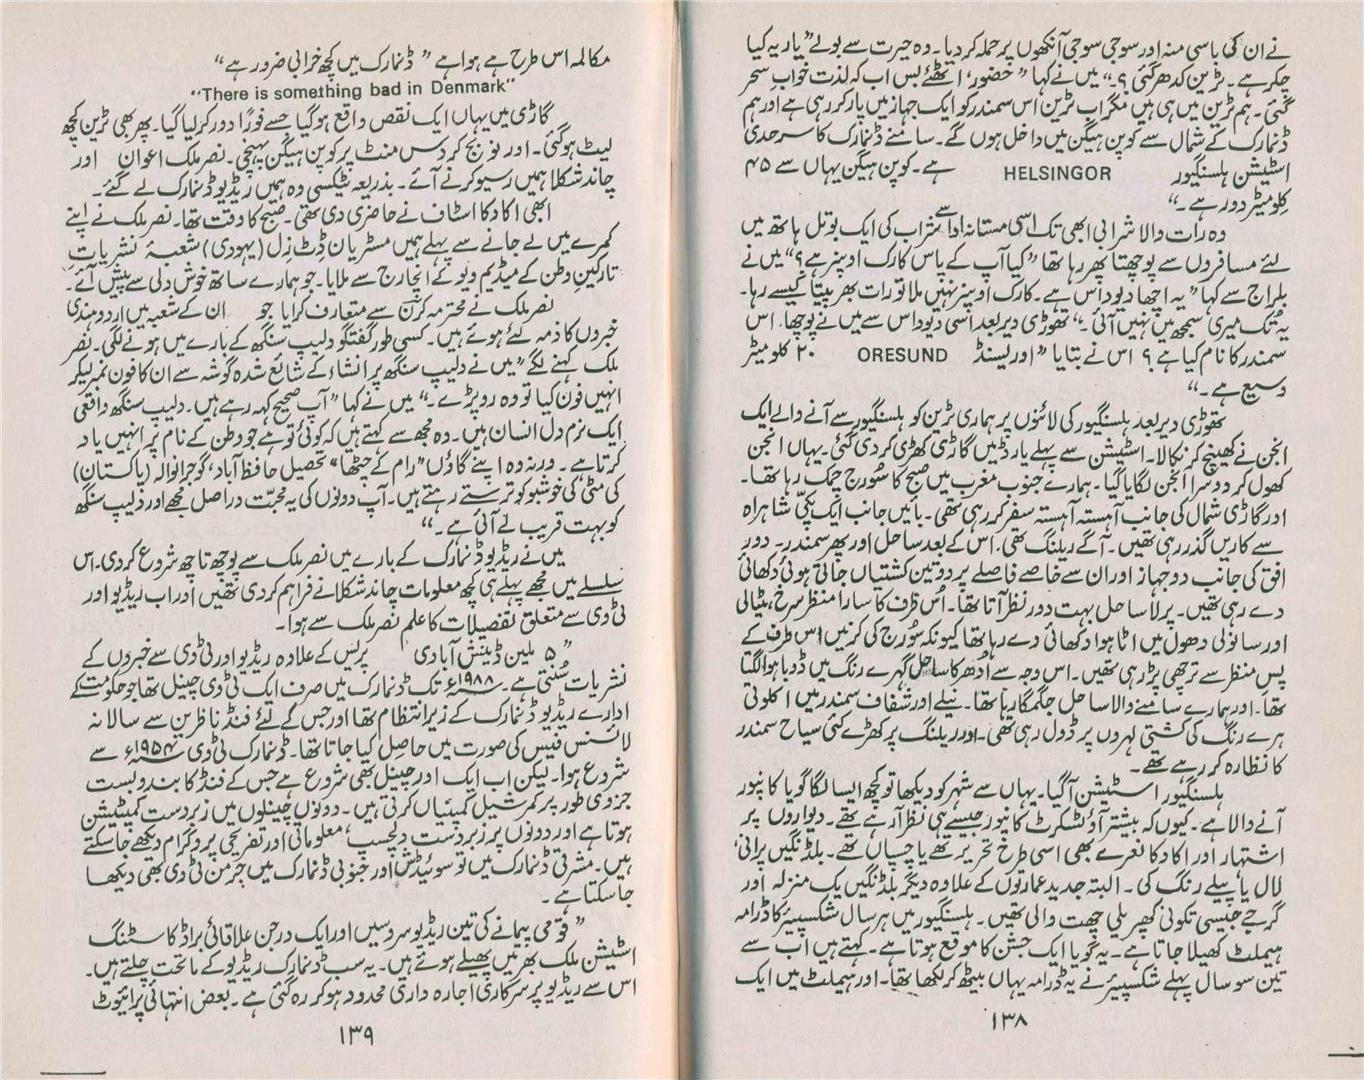 نے ان کی باسی منہ اور سوجی سوجی آنکھوں پر حملہ کر دیا۔ وہ حیرت سے بولے "یار یہ کیا
چکر ہے۔ ٹرین کدھر گئی ؟۔" میں نے کہا "حضور، اٹھئے بس اب کہ لذت خواب سحر
گئی۔ ہم ٹرین میں ہی ہیں مگر اب ٹرین اس سمندر کو ایک جہاز میں پار کر رہی ہے اور ہم
ڈنمارک کے شمال سے کوپن ہیگن میں داخل ہوں گے۔ سامنے ڈنمارک کا سرحدی
اسٹیشن ہلسنگیور HELSINGOR ہے۔ کوپن ہیگن یہاں سے ۴۵
کلومیٹر دور ہے۔"
وہ رات والا شرابی ابھی تک اسی مستانہ ادا سے شراب کی ایک بوتل ہاتھ میں
لئے مسافروں سے پوچھتا پھر رہا تھا "کیا آپ کے پاس کارک اوپنر ہے؟" میں نے
بلراج سے کہا "یہ اچھا دیوداس ہے۔ کارک اوپنر نہیں ملا تو رات بھر پیتا کیسے رہا۔
یہ تک میری سمجھ میں نہیں آئی۔" تھوڑی دیر بعد اسی دیوداس سے میں نے پوچھا، اس
سمندر کا نام کیا ہے؟ اس نے بتایا "اوریسنڈ ORESUND ۲۰ کلومیٹر
وسیع ہے۔"
تھوڑی دیر بعد ہلسنگیور کی لائنوں پر ہماری ٹرین کو ہلسنگیور سے آنے والے ایک
انجن نے کھینچ کر نکالا۔ اسٹیشن سے پہلے یارڈ میں گاڑی کھڑی کر دی گئی۔ یہاں انجن
کھول کر دوسرا انجن لگایا گیا۔ ہمارے جنوب مغرب میں صبح کا سورج چمک رہا تھا۔
اور گاڑی شمال کی جانب آہستہ آہستہ سفر کر رہی تھی۔ بائیں جانب ایک پکی شاہراہ
سے کاریں گذر رہی تھیں۔ آگے ریلنگ تھی، اس کے بعد ساحل اور پھر سمندر۔ دور
افق کی جانب دو جہاز اور ان سے خاصے فاصلے پر دو تین کشتیاں جاتی ہوئی دکھائی
دے رہی تھیں۔ پرلا ساحل بہت دور نظر آتا تھا۔ اُس طرف کا سارا منظر سرخ، مٹیالی
اور سانولی دھول میں اٹا ہوا دکھائی دے رہا تھا کیونکہ سورج کی کرنیں اس طرف کے
پس منظر سے ترچھی پڑ رہی تھیں۔ اس وجہ سے اُدھر کا ساحل گہرے رنگ میں ڈوبا ہوا لگتا
تھا۔ اور ہمارے سامنے والا ساحل جگمگا رہا تھا۔ نیلے اور شفاف سمندر میں اکلوتی
ہرے رنگ کی کشتی لہروں پر ڈول رہی تھی۔ اور ریلنگ پر کھڑے کئی سیاح سمندر
کا نظارہ کر رہے تھے۔
ہلسنگیور اسٹیشن آ گیا۔ یہاں سے شہر کو دیکھا تو کچھ ایسا لگا گویا کانپور
آنے والا ہے۔ کیوں کہ بیشتر آؤٹ سکرٹ کانپور جیسے ہی نظر آ رہے تھے۔ دیواروں پر
اشتہار اور اکا دکا نعرے بھی اسی طرح تحریر تھے یا چسپاں تھے۔ بلڈنگیں پرانی،
لال یا پیلے رنگ کی۔ البتہ جدید عمارتوں کے علاوہ دیگر بلڈنگیں یک منزلہ اور
گرجے جیسی تکونی کھپریلی چھت والی تھیں۔ ہلسنگیور میں ہر سال شکسپیئر کا ڈرامہ
ہیملٹ کھیلا جاتا ہے۔ یہ گویا ایک جشن کا موقع ہوتا ہے۔ کہتے ہیں اب سے
تین سو سال پہلے شکسپیئر نے یہ ڈرامہ یہاں بیٹھ کر لکھا تھا۔ اور ہیملٹ میں ایک
۱۳۸
مکالمہ اس طرح ہے ہوا ہے "ڈنمارک میں کچھ خرابی ضرور ہے"
"There is something bad in Denmark"
گاڑی میں یہاں ایک نقص واقع ہو گیا جسے فوراً دور کر لیا گیا۔ پھر بھی ٹرین کچھ
لیٹ ہو گئی۔ اور نو بج کر دس منٹ پر کوپن ہیگن پہنچی۔ نصر ملک اعوان اور
چاند شکلا ہمیں رسیو کرنے آئے۔ بذریعہ ٹیکسی وہ ہمیں ریڈیو ڈنمارک لے گئے۔
ابھی اکا دکا اسٹاف نے حاضری دی تھی۔ صبح کا وقت تھا۔ نصر ملک نے اپنے
کمرے میں لے جانے سے پہلے ہمیں مسٹر یان ڈٹ زل (یہودی) شعبۂ نشریات
تارکین وطن کے میڈیم ویو کے انچارج سے ملایا۔ جو ہمارے ساتھ خوش دلی سے پیش آئے۔
نصر ملک نے محترمہ کرن سے متعارف کرایا جو ان کے شعبہ میں اردو ہندی
خبروں کا ذمہ لئے ہوئے ہیں۔ کسی طور گفتگو دلیپ سنگھ کے بارے میں ہونے لگی۔ نصر
ملک کہنے لگے "میں نے دلیپ سنگھ پر انشاء کے شائع شدہ گوشہ سے ان کا فون نمبر لیکر
انہیں فون کیا تو وہ رو پڑے۔" میں نے کہا "آپ صحیح کہہ رہے ہیں۔ دلیپ سنگھ واقعی
ایک نرم دل انسان ہیں۔ وہ مجھ سے کہتے ہیں کہ کوئی تو ہے جو وطن کے نام پر انہیں یاد
کرتا ہے۔ ورنہ وہ اپنے گاؤں "رام کے چٹھا" تحصیل حافظ آباد، گوجرانوالہ (پاکستان)
کی مٹی کی خوشبو کو ترستے رہتے ہیں۔ آپ دونوں کی یہ محبت دراصل مجھے اور دلیپ سنگھ
کو بہت قریب لے آئی ہے۔"
میں نے ریڈیو ڈنمارک کے بارے میں نصر ملک سے پوچھ تاچھ شروع کر دی۔ اس
سلسلے میں مجھے پہلے ہی کچھ معلومات چاند شکلا نے فراہم کر دی تھیں اور اب ریڈیو اور
ٹی وی سے متعلق تفصیلات کا علم نصر ملک سے ہوا۔
"۵ ملین ڈینش آبادی پریس کے علاوہ ریڈیو اور ٹی وی سے خبروں کے
نشریات سُنتی ہے۔ ۱۹۸۸ء تک ڈنمارک میں صرف ایک ٹی وی چینل تھا جو حکومت کے
ادارے ریڈیو ڈنمارک کے زیر انتظام تھا اور جس کے لئے فنڈ ناظرین سے سالانہ
لائسنس فیس کی صورت میں حاصل کیا جاتا تھا۔ ڈنمارک ٹی وی ۱۹۵۴ء سے
شروع ہوا۔ لیکن اب ایک اور چینل بھی شروع ہے جس کے فنڈ کا بندوبست
جزوی طور پر کمرشیل کمپنیاں کرتی ہیں۔ دونوں چینلوں میں زبردست کمپٹیشن
ہوتا ہے اور دونوں پر زبردست دلچسپ، معلوماتی اور تفریحی پروگرام دیکھے جا سکتے
ہیں۔ مشرقی ڈنمارک میں تو سوئیڈش اور جنوبی ڈنمارک میں جرمن ٹی وی بھی دیکھا
جا سکتا ہے۔
"قومی پیمانے کی تین ریڈیو سروسیں اور ایک درجن علاقائی براڈ کاسٹنگ
اسٹیشن ملک بھر میں پھیلے ہوئے ہیں۔ یہ سب ڈنمارک ریڈیو کے ماتحت چلتے ہیں۔
اس سے ریڈیو پر سرکاری اجارہ داری محدود ہو کر رہ گئی ہے۔ بعض انتہائی پرائیوٹ
۱۳۹